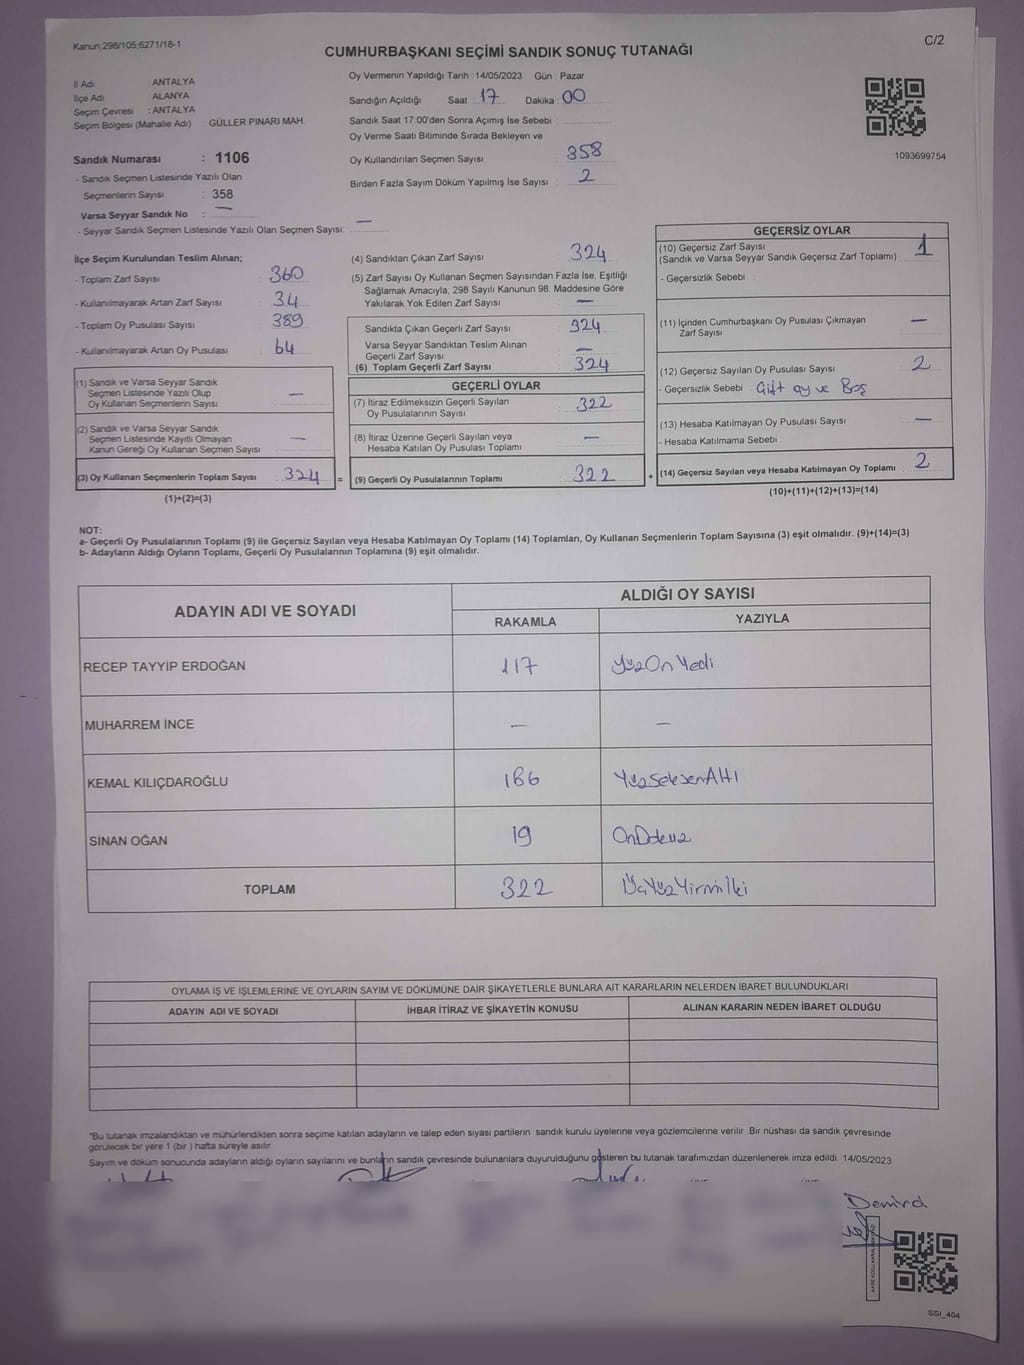 Kanun:298/105,6271/18-1
C/2
CUMHURBAŞKANI SEÇİMİ SANDIK SONUÇ TUTANAĞI
İl Adı : ANTALYA
İlçe Adı : ALANYA
Seçim Çevresi : ANTALYA
Seçim Bölgesi (Mahalle Adı) GÜLLER PINARI MAH.
Sandık Numarası : 1106
- Sandık Seçmen Listesinde Yazılı Olan
Seçmenlerin Sayısı : 358
Varsa Seyyar Sandık No : —
- Seyyar Sandık Seçmen Listesinde Yazılı Olan Seçmen Sayısı: —
Oy Vermenin Yapıldığı Tarih : 14/05/2023 Gün : Pazar
Sandığın Açıldığı Saat 17 Dakika 00
Sandık Saat 17:00'den Sonra Açımış İse Sebebi :
Oy Verme Saati Bitiminde Sırada Bekleyen ve
Oy Kullandırılan Seçmen Sayısı : 358
Birden Fazla Sayım Döküm Yapılmış İse Sayısı : 2
1093699754
İlçe Seçim Kurulundan Teslim Alınan;
- Toplam Zarf Sayısı : 360
- Kullanılmayarak Artan Zarf Sayısı : 34
- Toplam Oy Pusulası Sayısı : 389
- Kullanılmayarak Artan Oy Pusulası : 64
(1) Sandık ve Varsa Seyyar Sandık
Seçmen Listesinde Yazılı Olup
Oy Kullanan Seçmenlerin Sayısı : —
(2) Sandık ve Varsa Seyyar Sandık
Seçmen Listesinde Kayıtlı Olmayan
Kanun Gereği Oy Kullanan Seçmen Sayısı : —
(3) Oy Kullanan Seçmenlerin Toplam Sayısı : 324
(1)+(2)=(3)
(4) Sandıktan Çıkan Zarf Sayısı : 324
(5) Zarf Sayısı Oy Kullanan Seçmen Sayısından Fazla İse, Eşitliği
Sağlamak Amacıyla; 298 Sayılı Kanunun 98. Maddesine Göre
Yakılarak Yok Edilen Zarf Sayısı : —
Sandıkta Çıkan Geçerli Zarf Sayısı : 324
Varsa Seyyar Sandıktan Teslim Alınan
Geçerli Zarf Sayısı : —
(6) Toplam Geçerli Zarf Sayısı : 324
GEÇERLİ OYLAR
(7) İtiraz Edilmeksizin Geçerli Sayılan
Oy Pusulalarının Sayısı : 322
(8) İtiraz Üzerine Geçerli Sayılan veya
Hesaba Katılan Oy Pusulası Toplamı : —
= (9) Geçerli Oy Pusulalarının Toplamı : 322
GEÇERSİZ OYLAR
(10) Geçersiz Zarf Sayısı
(Sandık ve Varsa Seyyar Sandık Geçersiz Zarf Toplamı) : 1
- Geçersizlik Sebebi :
(11) İçinden Cumhurbaşkanı Oy Pusulası Çıkmayan
Zarf Sayısı : —
(12) Geçersiz Sayılan Oy Pusulası Sayısı : 2
- Geçersizlik Sebebi : Çift oy ve Boş
(13) Hesaba Katılmayan Oy Pusulası Sayısı : —
- Hesaba Katılmama Sebebi :
+ (14) Geçersiz Sayılan veya Hesaba Katılmayan Oy Toplamı : 2
(10)+(11)+(12)+(13)=(14)
NOT:
a- Geçerli Oy Pusulalarının Toplamı (9) ile Geçersiz Sayılan veya Hesaba Katılmayan Oy Toplamı (14) Toplamları, Oy Kullanan Seçmenlerin Toplam Sayısına (3) eşit olmalıdır. (9)+(14)=(3)
b- Adayların Aldığı Oyların Toplamı, Geçerli Oy Pusulalarının Toplamına (9) eşit olmalıdır.
ADAYIN ADI VE SOYADI ALDIĞI OY SAYISI
RAKAMLA YAZIYLA
RECEP TAYYİP ERDOĞAN 117 YüzOnYedi
MUHARREM İNCE — —
KEMAL KILIÇDAROĞLU 186 YüzSeksenAltı
SİNAN OĞAN 19 OnDokuz
TOPLAM 322 ÜçYüzYirmiİki
OYLAMA İŞ VE İŞLEMLERİNE VE OYLARIN SAYIM VE DÖKÜMÜNE DAİR ŞİKAYETLERLE BUNLARA AİT KARARLARIN NELERDEN İBARET BULUNDUKLARI
ADAYIN ADI VE SOYADI İHBAR İTİRAZ VE ŞİKAYETİN KONUSU ALINAN KARARIN NEDEN İBARET OLDUĞU
"Bu tutanak imzalandıktan ve mühürlendikten sonra seçime katılan adayların ve talep eden siyasi partilerin sandık kurulu üyelerine veya gözlemcilerine verilir. Bir nüshası da sandık çevresinde
görülecek bir yere 1 (bir ) hafta süreyle asılır.
Sayım ve döküm sonucunda adayların aldığı oyların sayılarını ve bunların sandık çevresinde bulunanlara duyurulduğunu gösteren bu tutanak tarafımızdan düzenlenerek imza edildi. 14/05/2023
Demird
SSI_404